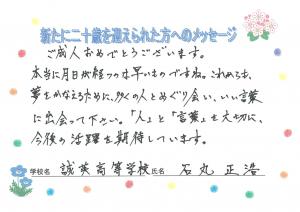 新たに二十歳を迎えられた方へのメッセージ
ご成人おめでとうございます。
本当に月日が経つのは早いものですね。これからも、
夢をかなえるために、多くの人とめぐり会い、いい言葉
に出会って下さい。「人」と「言葉」を大切に、
今後の活躍を期待しています。
学校名 誠英高等学校 氏名 石丸 正浩